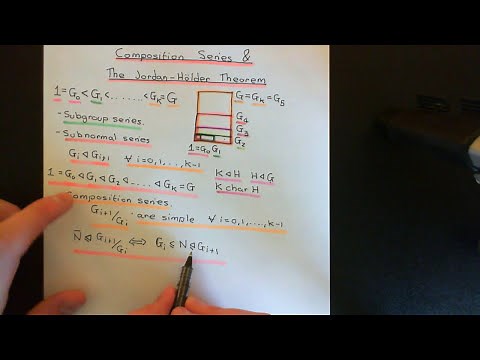 Composition Series &
The Jordan-Hölder Theorem
1 = G₀ < G₁ < ...... < Gₖ = G
G = Gₖ = G₅
G₄
- Subgroup series.
G₃
- Subnormal series
G₂
1 = G₀ G₁
Gᵢ ◁ Gᵢ₊₁ ∀ i = 0,1,...,k-1
K ◁ H H ◁ G
1 = G₀ ◁ G₁ ◁ G₂ ◁ ..... ◁ Gₖ = G
K char H
Composition series.
Gᵢ₊₁/Gᵢ are simple ∀ i = 0,1,...,k-1
N̄ ⊴ Gᵢ₊₁/Gᵢ ⟺ Gᵢ ≤ N ⊴ Gᵢ₊₁